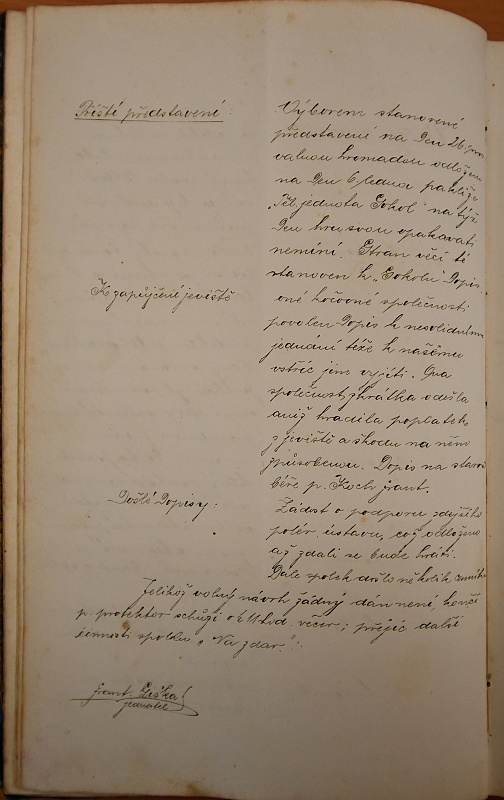 Příští představení:
Výborem stanovené
představení na den 26. pro.
valnou hromadou odloženo
na den 6. ledna pakliže
"Těl. jednota Sokol" na týž
den hru svou opakovati
nemíní. Stran věci té
stanoven k "Sokolu" dopis.
K zapůjčení jeviště
oné kočovné společnosti
povolen dopis k nesolidnímu
jednání téže k našemu
vstříc jim vyjití. Ona
společnost zkrátka odešla
aniž hradila poplatek
z jeviště a škodu na něm
způsobenou. Dopis na staro
béře p. Koch Frant.
Došlé dopisy:
Žádost o podporu zdejšího
polér. ústavu, což odloženo
až zdali se bude hráti.
Dále spolek došlo několik
Jelikož volný návrh žádný dán není, končí
p. protektor schůzi o hod. večer; přejíc další
činnosti spolku "Na zdar!":
Frant. Liška
jednatel